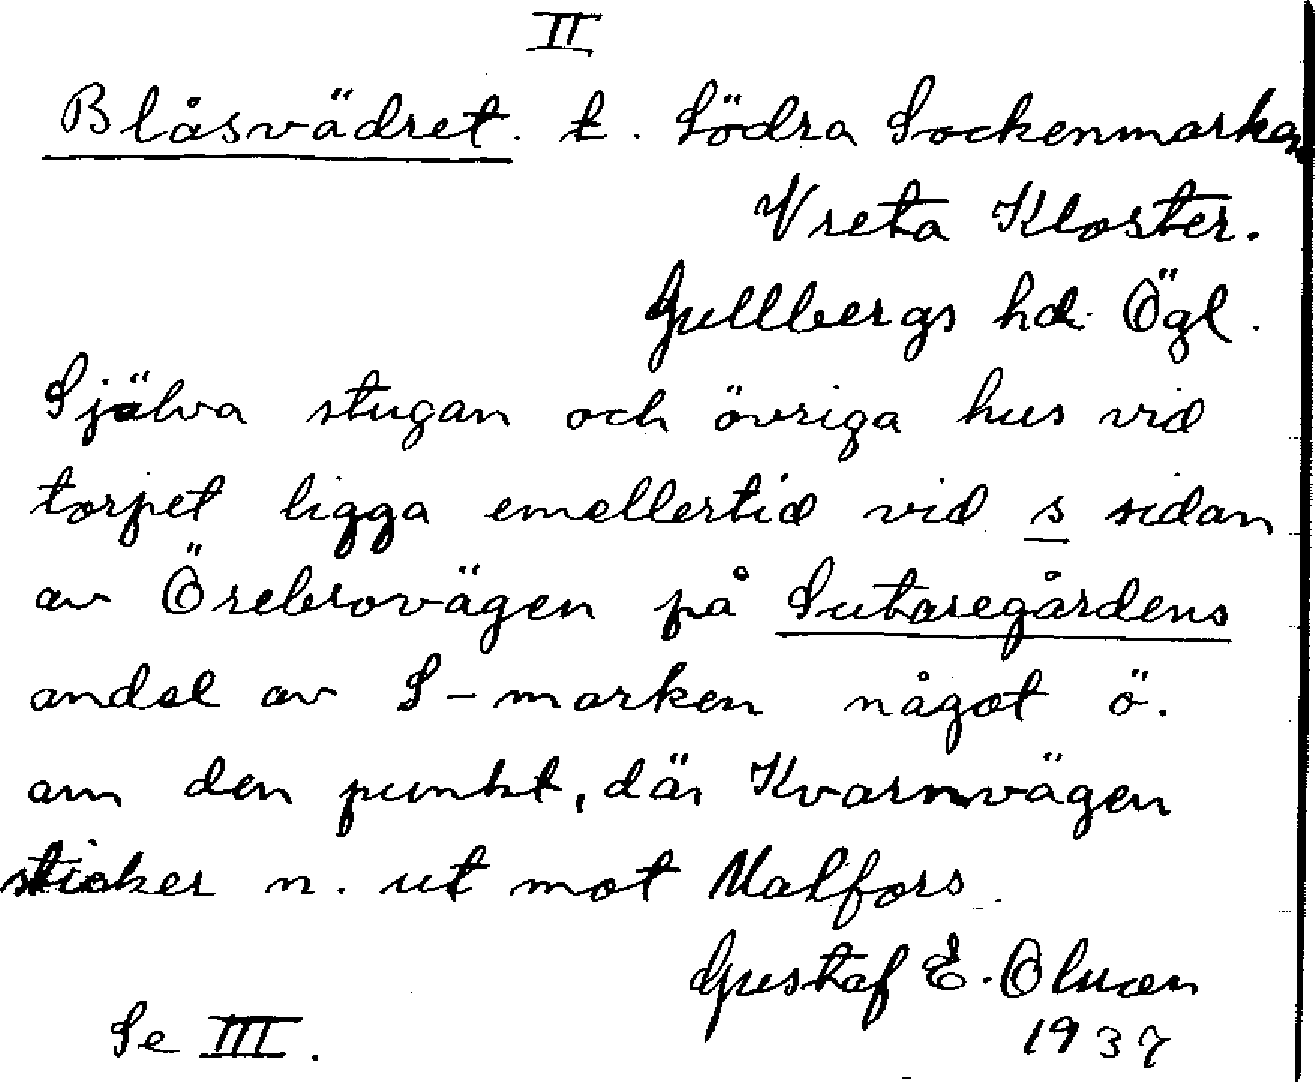 II
Blåsvädret. t. Södra Sockenmarken
Vreta Kloster.
Gullbergs hd. Ögl.
Själva stugan och övriga hus vid
torpet ligga emellertid vid s sidan
av Örebrovägen på Sutaregårdens
andel av S-marken något ö.
om den punkt, där Kvarnvägen
sticker n. ut mot Malfors.
Gustaf E.
1937
Se III.